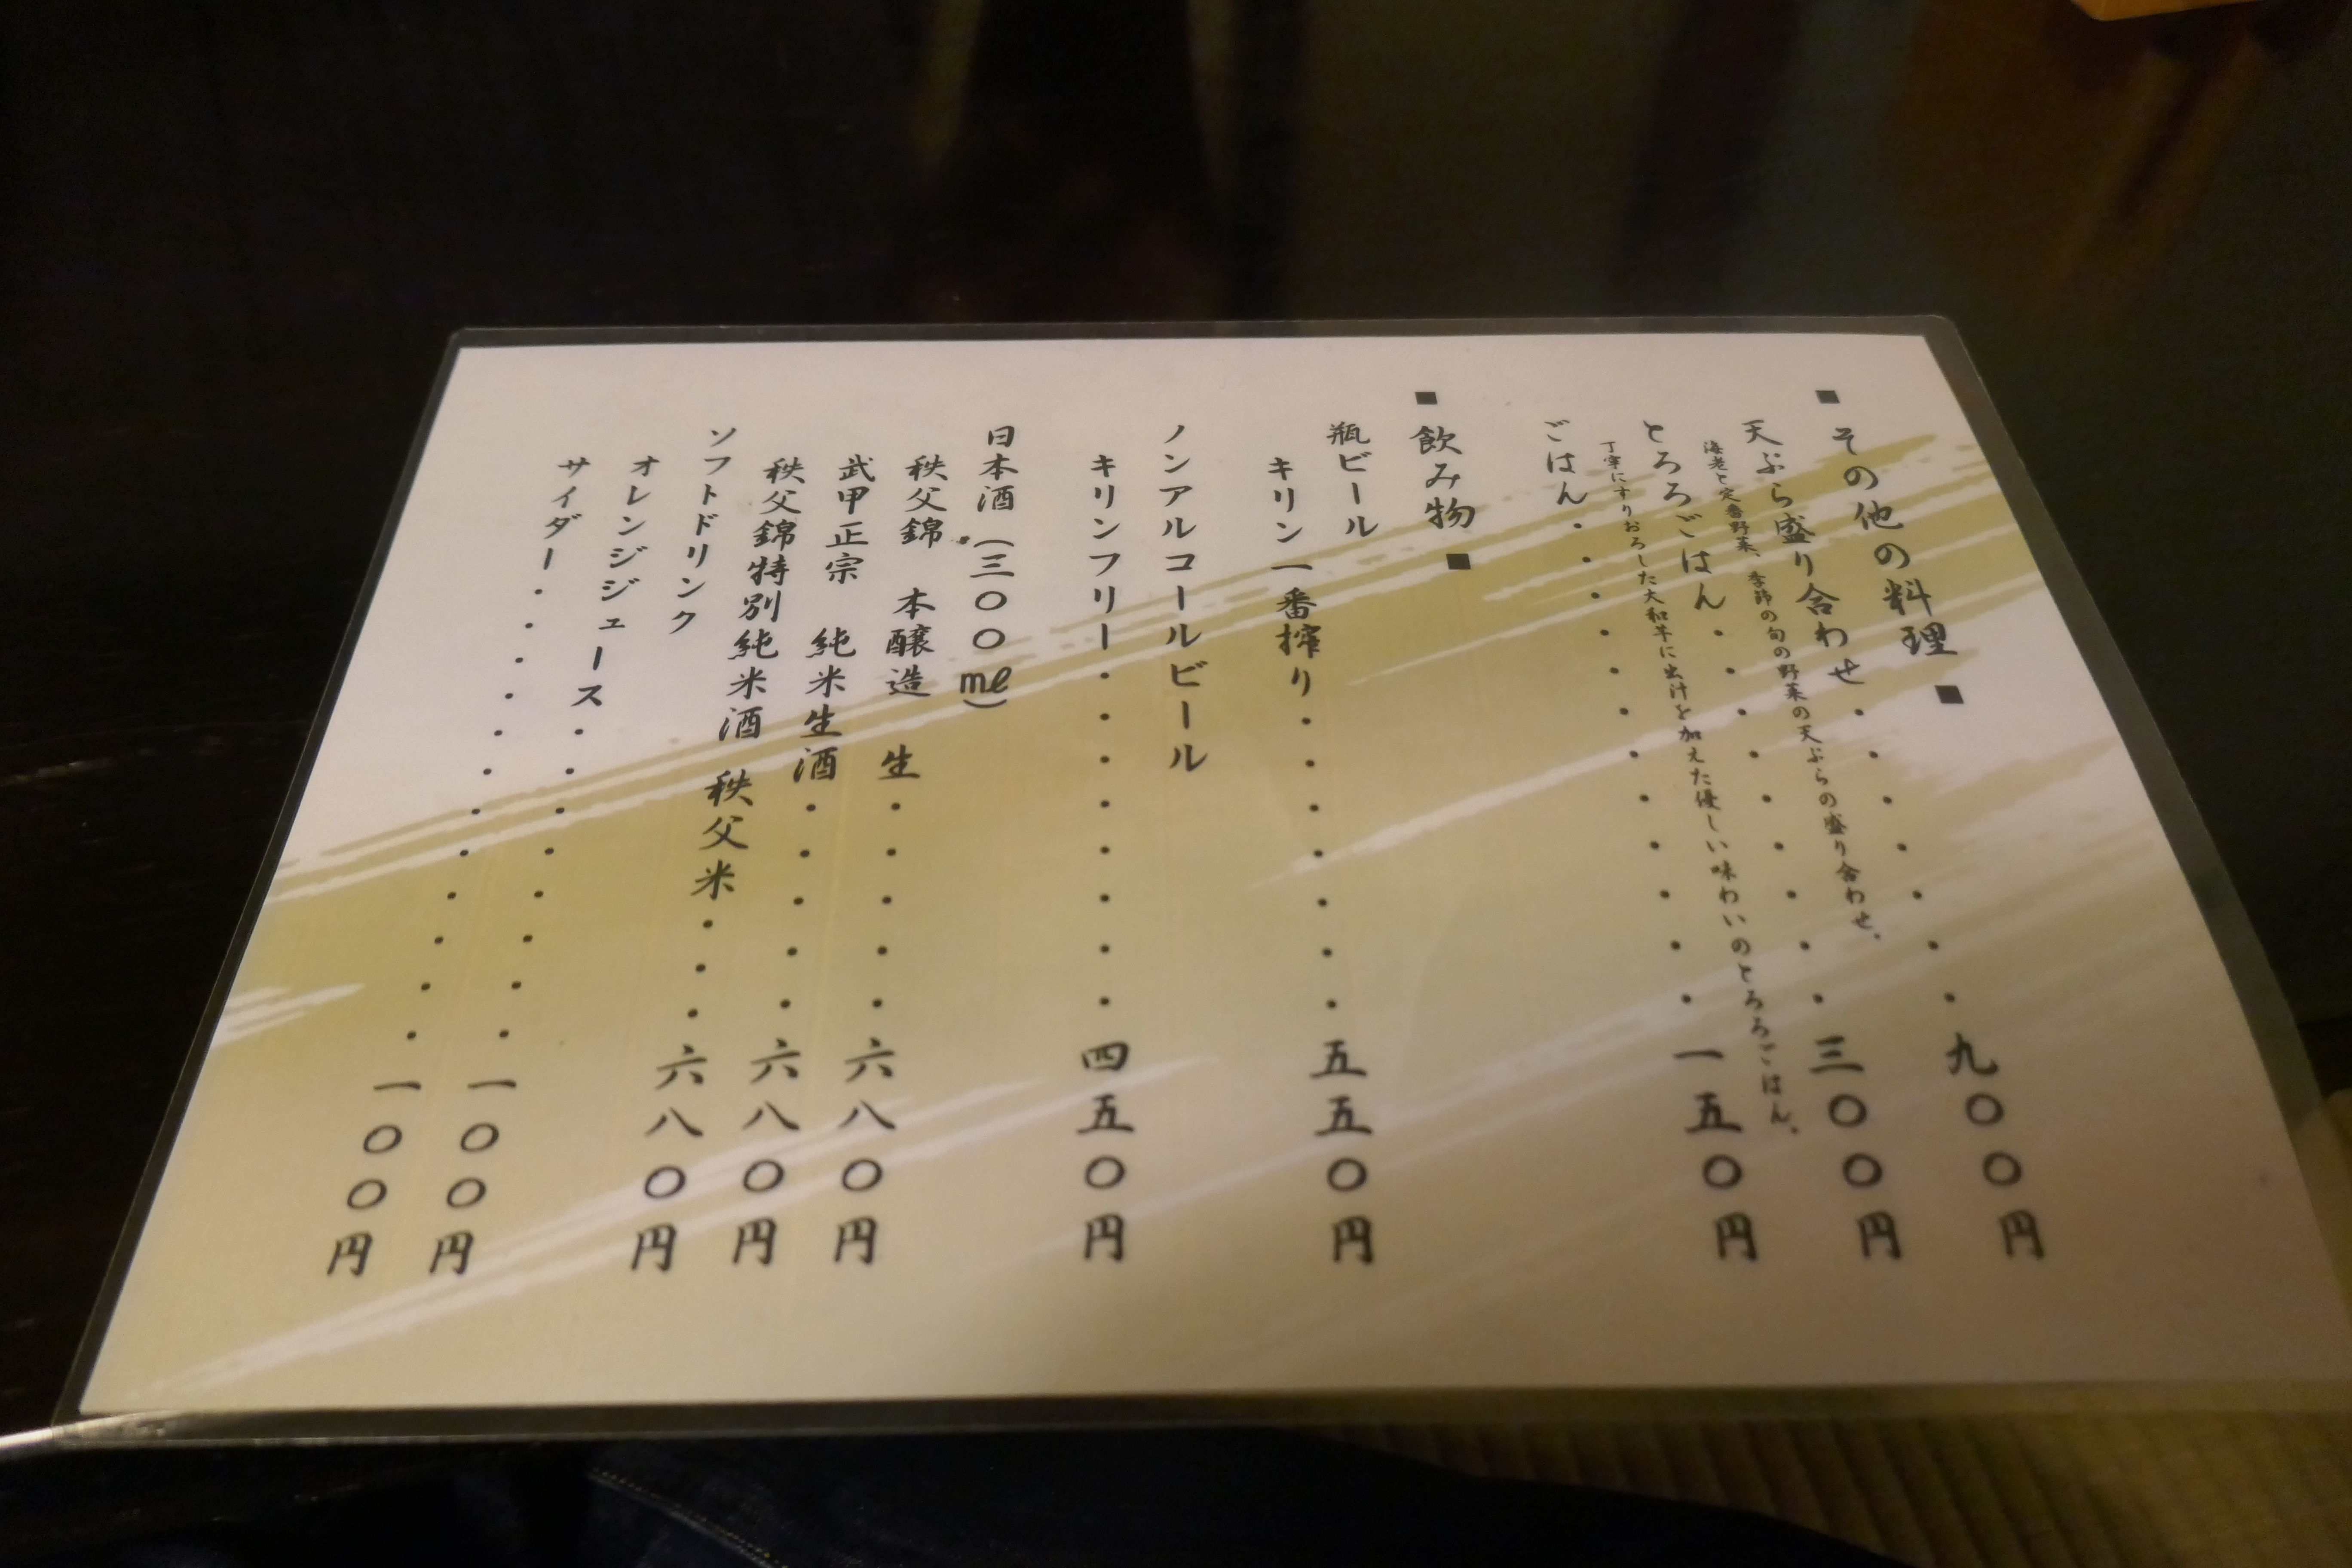 ■その他の料理■
天ぷら盛り合わせ・・・・・・・九〇〇円
海老と定番野菜、季節の旬の野菜の天ぷらの盛り合わせ。
とろろごはん・・・・・・・・・三〇〇円
丁寧にすりおろした大和芋に出汁を加えた優しい味わいのとろろごはん。
ごはん・・・・・・・・・・・・一五〇円
■飲み物■
瓶ビール
キリン一番搾り・・・・・・・五五〇円
ノンアルコールビール
キリンフリー・・・・・・・・四五〇円
日本酒(三〇〇㎖)
秩父錦 本醸造 生・・・・・六八〇円
武甲正宗 純米生酒・・・・・六八〇円
秩父錦特別純米酒 秩父米・・・六八〇円
ソフトドリンク
オレンジジュース・・・・・・・・一〇〇円
サイダー・・・・・・・・・・・・一〇〇円